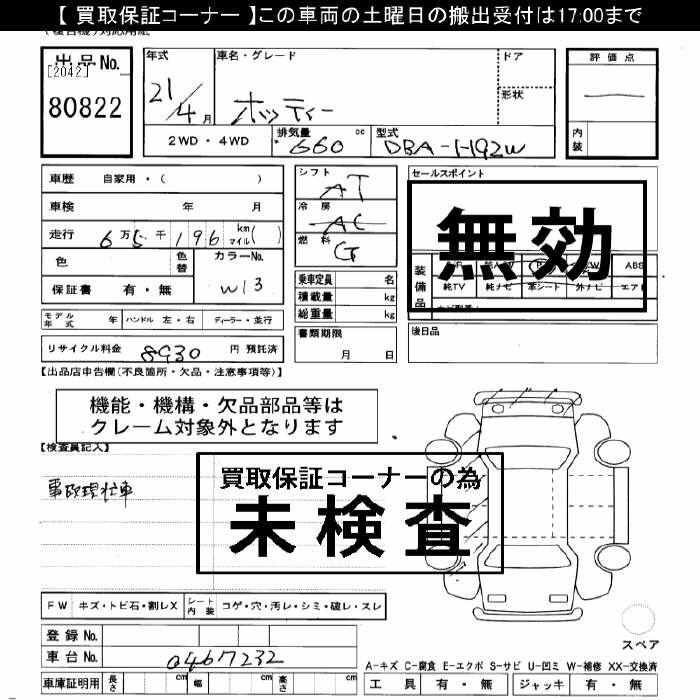 【 買取保証コーナー 】この車両の土曜日の搬出受付は17:00まで
出品No.
[2042]
80822
年式 車名・グレード ドア
21/4月 オッティー 形状
2WD・4WD 排気量 660 cc 型式 DBA-H92W
評価点
内装
車歴 自家用・( )
車検 年 月
走行 6万5千196 km マイル( )
色 色替 カラーNo.
W13
保証書 有・無
シフト AT
冷房 AC
燃料 G
乗車定員 名
積載量 kg
総重量 kg
セールスポイント
無効
装備品
ABS
純TV 純ナビ 革シート 外ナビ エアB
モデル年式 年 ハンドル 左・右 ディーラー・並行
書類期限
月 日
後日品
リサイクル料金 8930 円 預託済
【出品店申告欄(不良箇所・欠品・注意事項等)】
機能・機構・欠品部品等は
クレーム対象外となります
【検査員記入】
事故現状車
買取保証コーナーの為
未検査
FW キズ・トビ石・割レX シート内装 コゲ・穴・汚レ・シミ・破レ・スレ
登録No.
車台No. 0467232
車庫証明用 長さ cm 幅 cm 高さ cm
スペア
A-キズ C-腐食 E-エクボ S-サビ U-凹ミ W-補修 XX-交換済
工具 有・無 ジャッキ 有・無